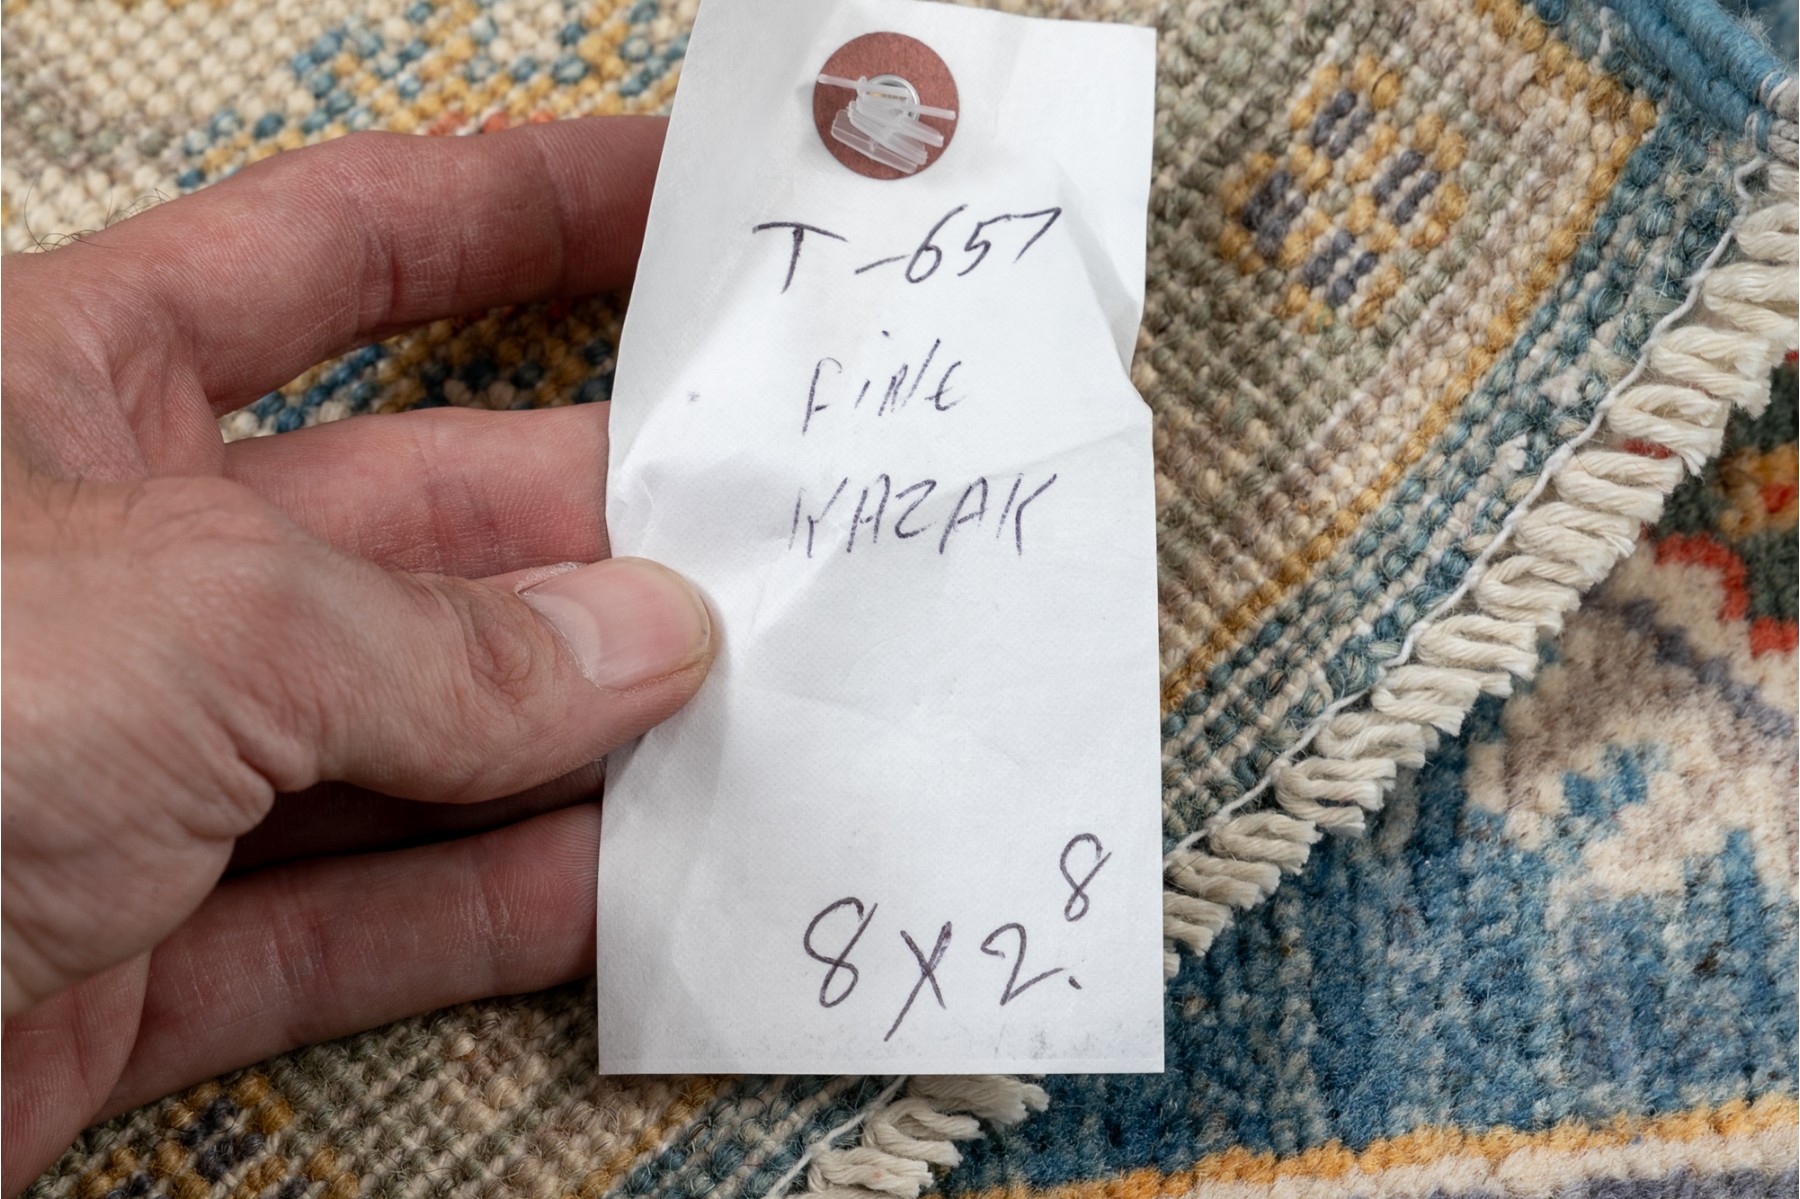 T-657
FiNE
KAZAK
8 X 2.8